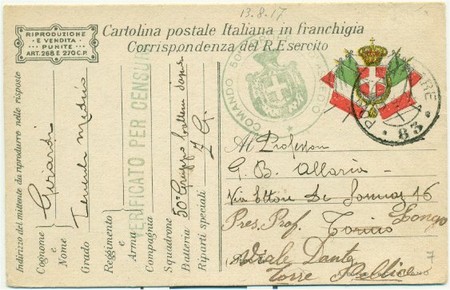 13.8.17
RIPRODUZIONE
E VENDITA
PUNITE
ART. 268 E 270 C.P.
Cartolina postale Italiana in franchigia
Corrispondenza del R. Esercito
Indirizzo del mittente da riprodurre nelle risposte
Cognome Girardi
e
Nome
Grado Tenente medico
Reggimento
e
Arma
Compagnia
Squadrone
Batteria 50° Gruppo
Riparti speciali Z. G.
VERIFICATO PER CENSURA
COMANDO 50
83
Al Professore
G. B. Allaria
Via Ettore De Sonnaz 16
Pres. Prof. Longo
Torino
Viale Dante
Torre Pellice
7